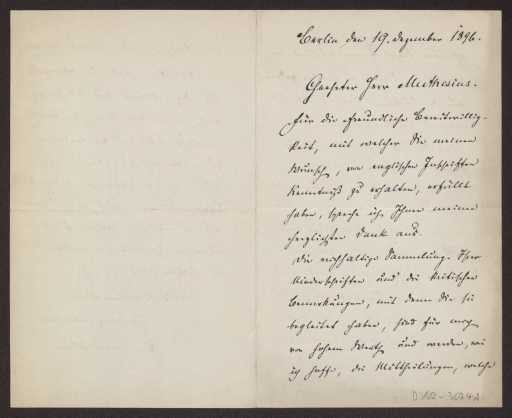 Berlin den 19. Dezember 1896.
Geehrter Herr Muthesius.
Für die freundliche Bereitwillig-
keit, mit welcher Sie meinen
Wunsch, von englischen Inschriften
Kenntniß zu erhalten, erfüllt
haben, spreche ich Ihnen meinen
herzlichsten Dank aus.
Die reichhaltige Sammlung Ihrer
Niederschriften und die kritischen
Bemerkungen, mit denen Sie sie
begleitet haben, sind für mich
von hohem Werth und werden, wie
ich hoffe, die Mittheilungen, welche